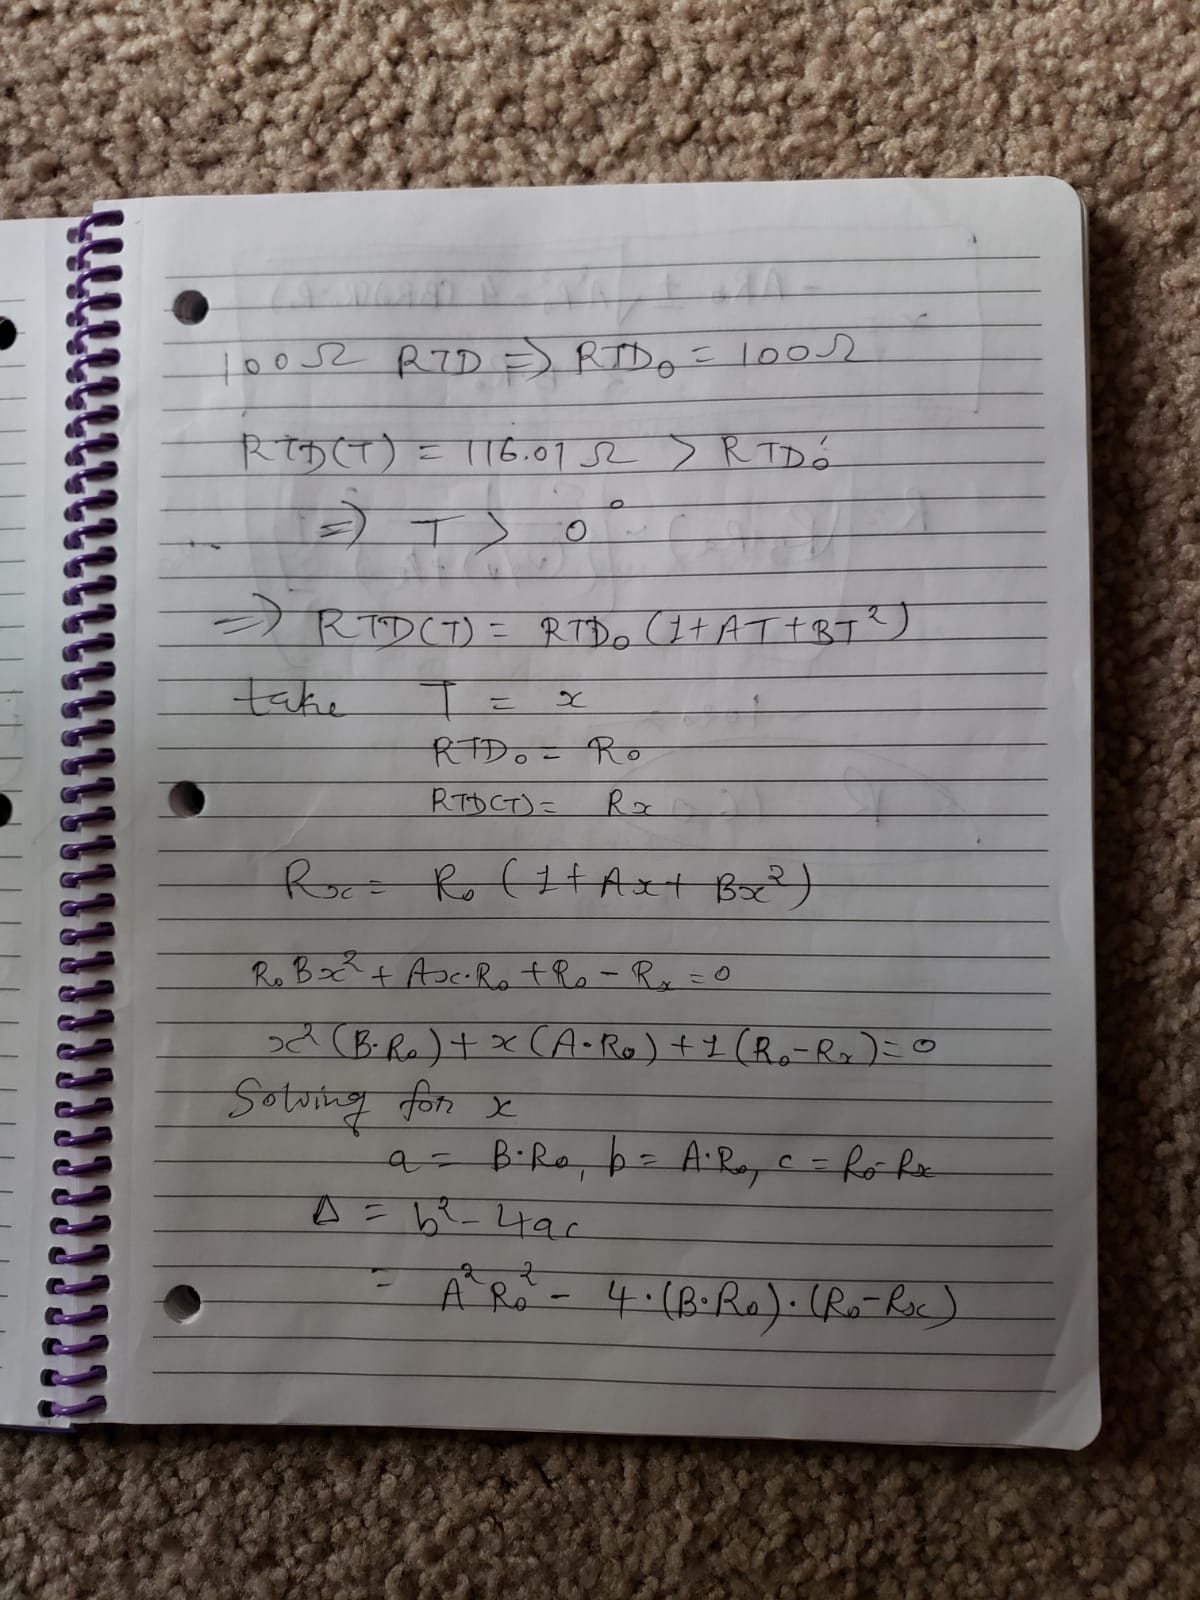 100Ω RTD => RTD₀ = 100Ω
RTD(T) = 116.07 Ω > RTD₀
=> T > 0°
=> RTD(T) = RTD₀ (1+AT+BT²)
take T = x
RTD₀ = R₀
RTD(T) = Rx
Rx = R₀ (1+Ax+Bx²)
R₀Bx² + Ax·R₀ + R₀ - Rx = 0
x² (B·R₀) + x (A·R₀) + 1 (R₀-Rx) = 0
Solving for x
a = B·R₀, b = A·R₀, c = R₀-Rx
Δ = b² - 4ac
= A²R₀² - 4·(B·R₀)·(R₀-Rx)